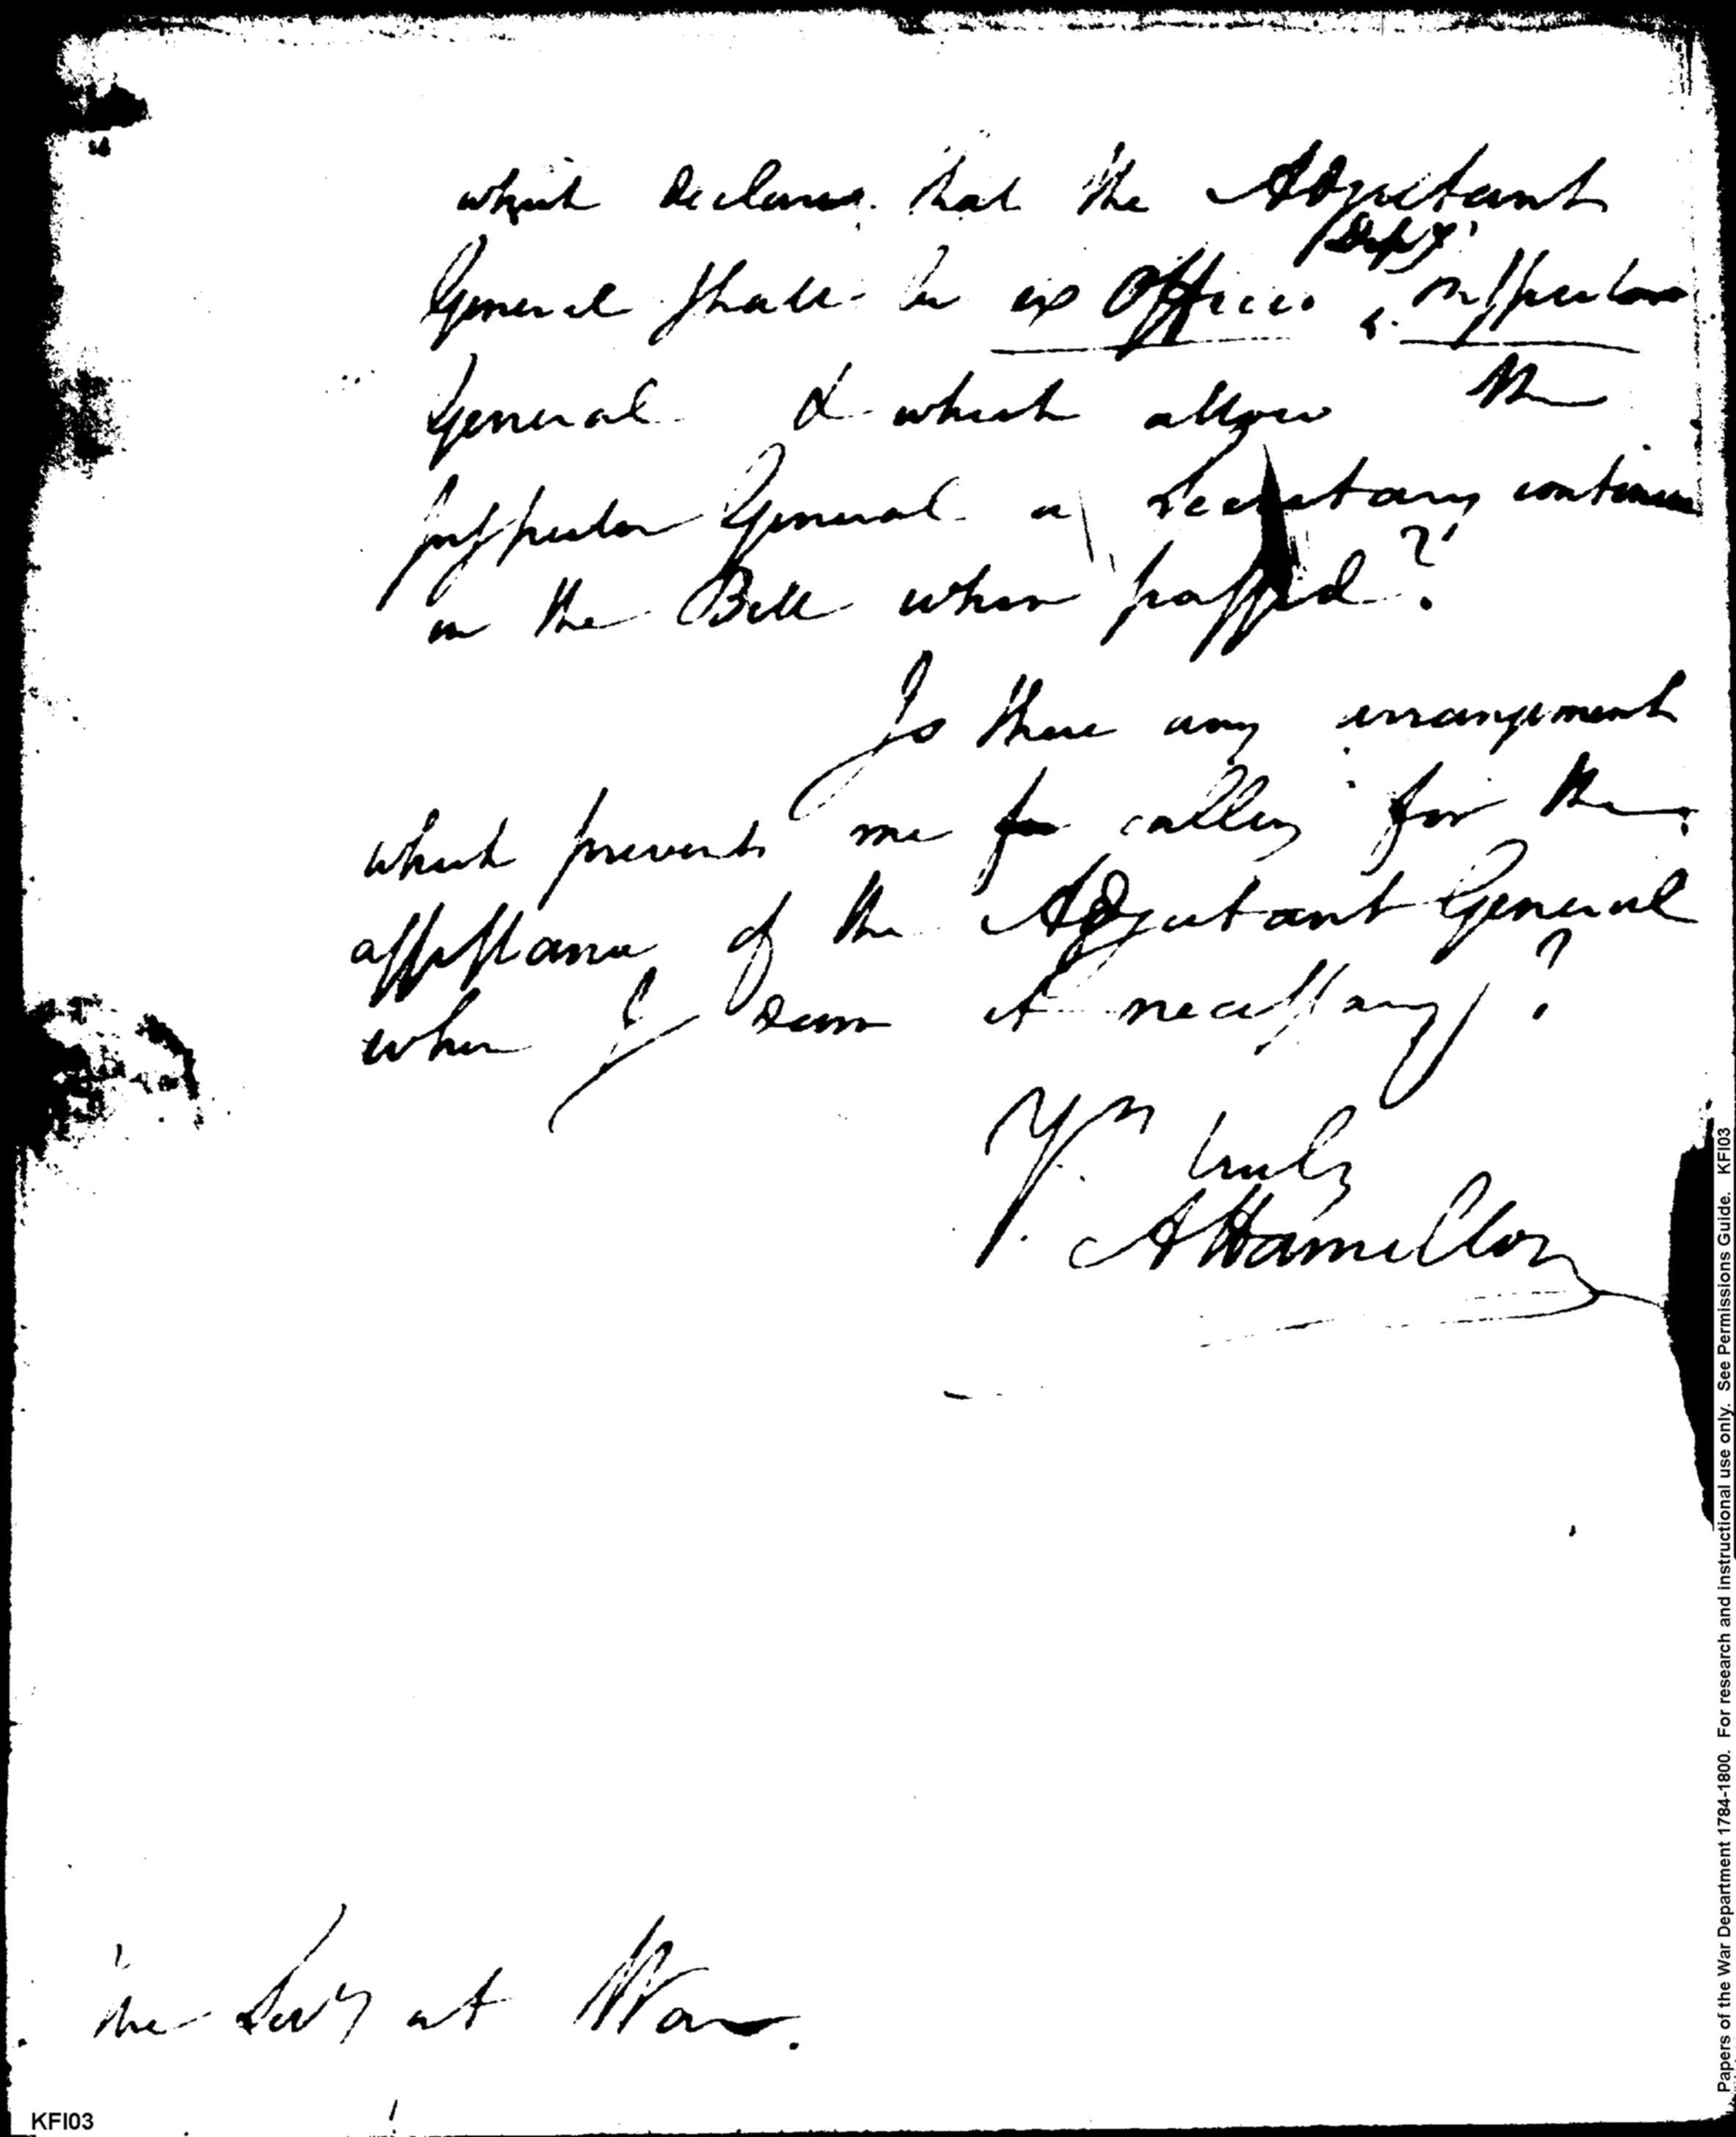 which declares that the Adjutant
Depy
General shall be ex Officio Inspector
General & which allow the
Inspector General a Secretary continue
in the Bill when passed?
Is there any arrangement
which prevents me calling for the
assistance of the Adjutant General
when I deem it necessary?
Yrs truly
A Hamilton
The Secy at War.
KFI03
Papers of the War Department 1784-1800. For research and instructional use only. See Permissions Guide. KFI03